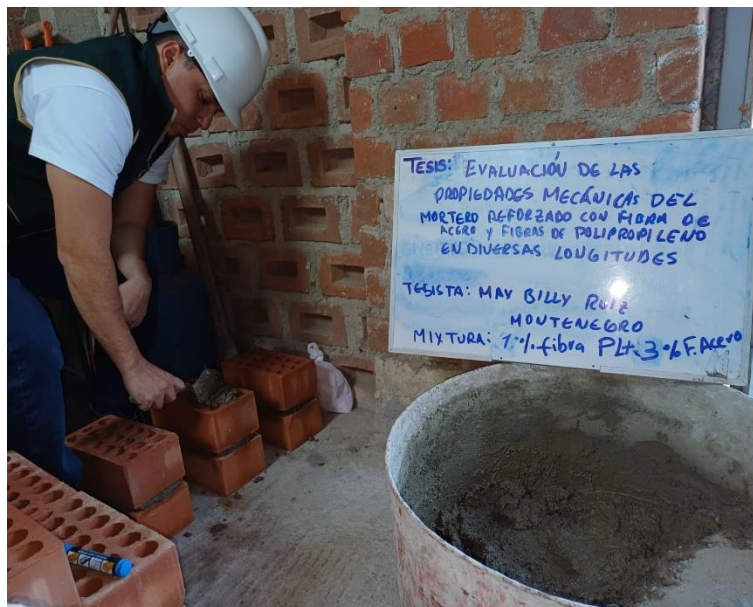 TESIS: EVALUACIÓN DE LAS
PROPIEDADES MECÁNICAS DEL
MORTERO REFORZADO CON FIBRA DE
ACERO Y FIBRAS DE POLIPROPILENO
EN DIVERSAS LONGITUDES
TESISTA: MAX BILLY RUIZ
MONTENEGRO
MIXTURA: 1% fibra PL+3% F. Acero